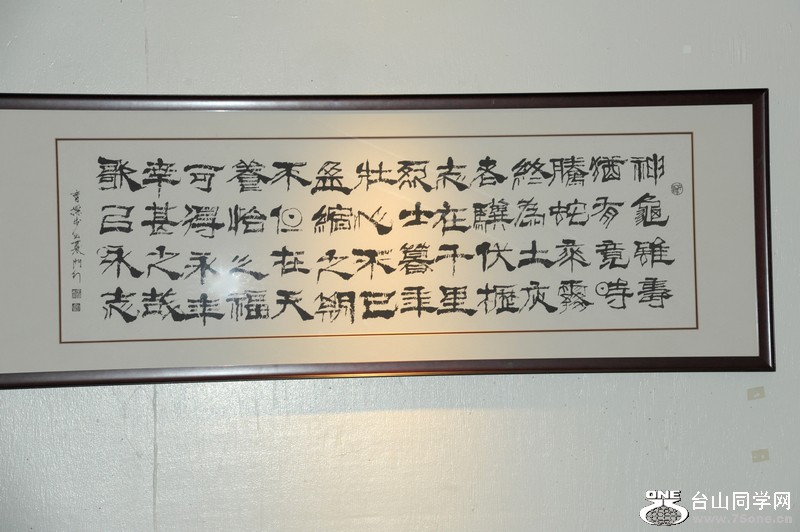 神龜雖壽
猶有竟時
騰蛇乘霧
終為土灰
老驥伏櫪
志在千里
烈士暮年
壯心不已
盈縮之期
不但在天
養怡之福
可得永年
幸甚之哉
歌以永志
曹操步出夏門行
ONE
台山同学网
www.75one.cn